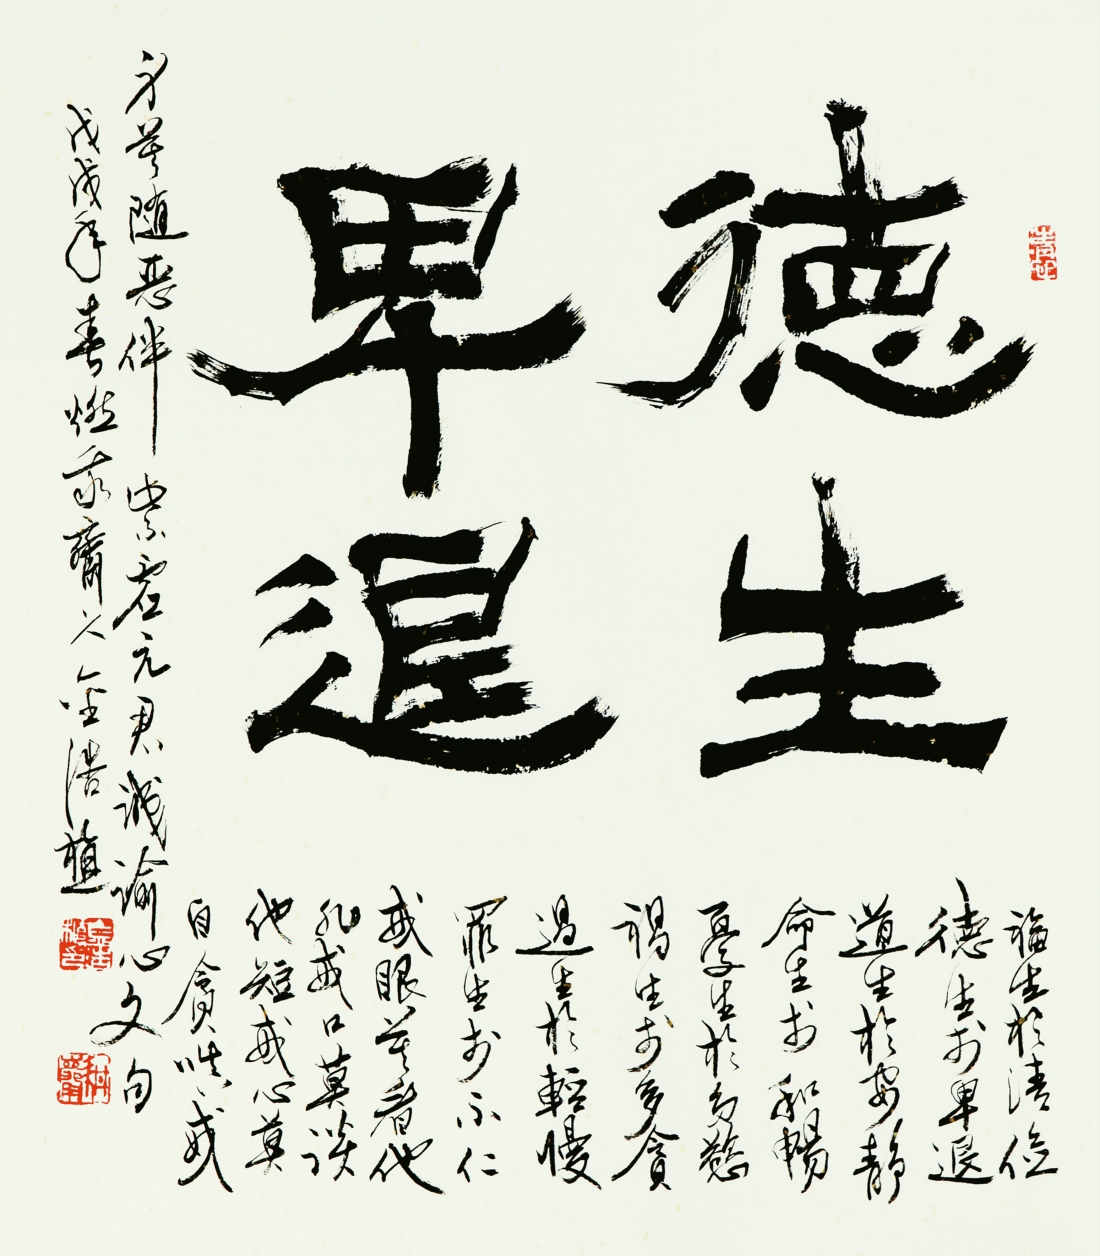 德生
卑退
福生於清儉
德生於卑退
道生於安靜
命生於和暢
憂生於多慾
禍生於多貪
過生於輕慢
罪生於不仁
戒眼莫看他
非戒口莫談
他短戒心莫
自貪嗔戒
身莫隨惡伴 紫虛元君誡諭心文句
戊戌年春燃齋人金浩植